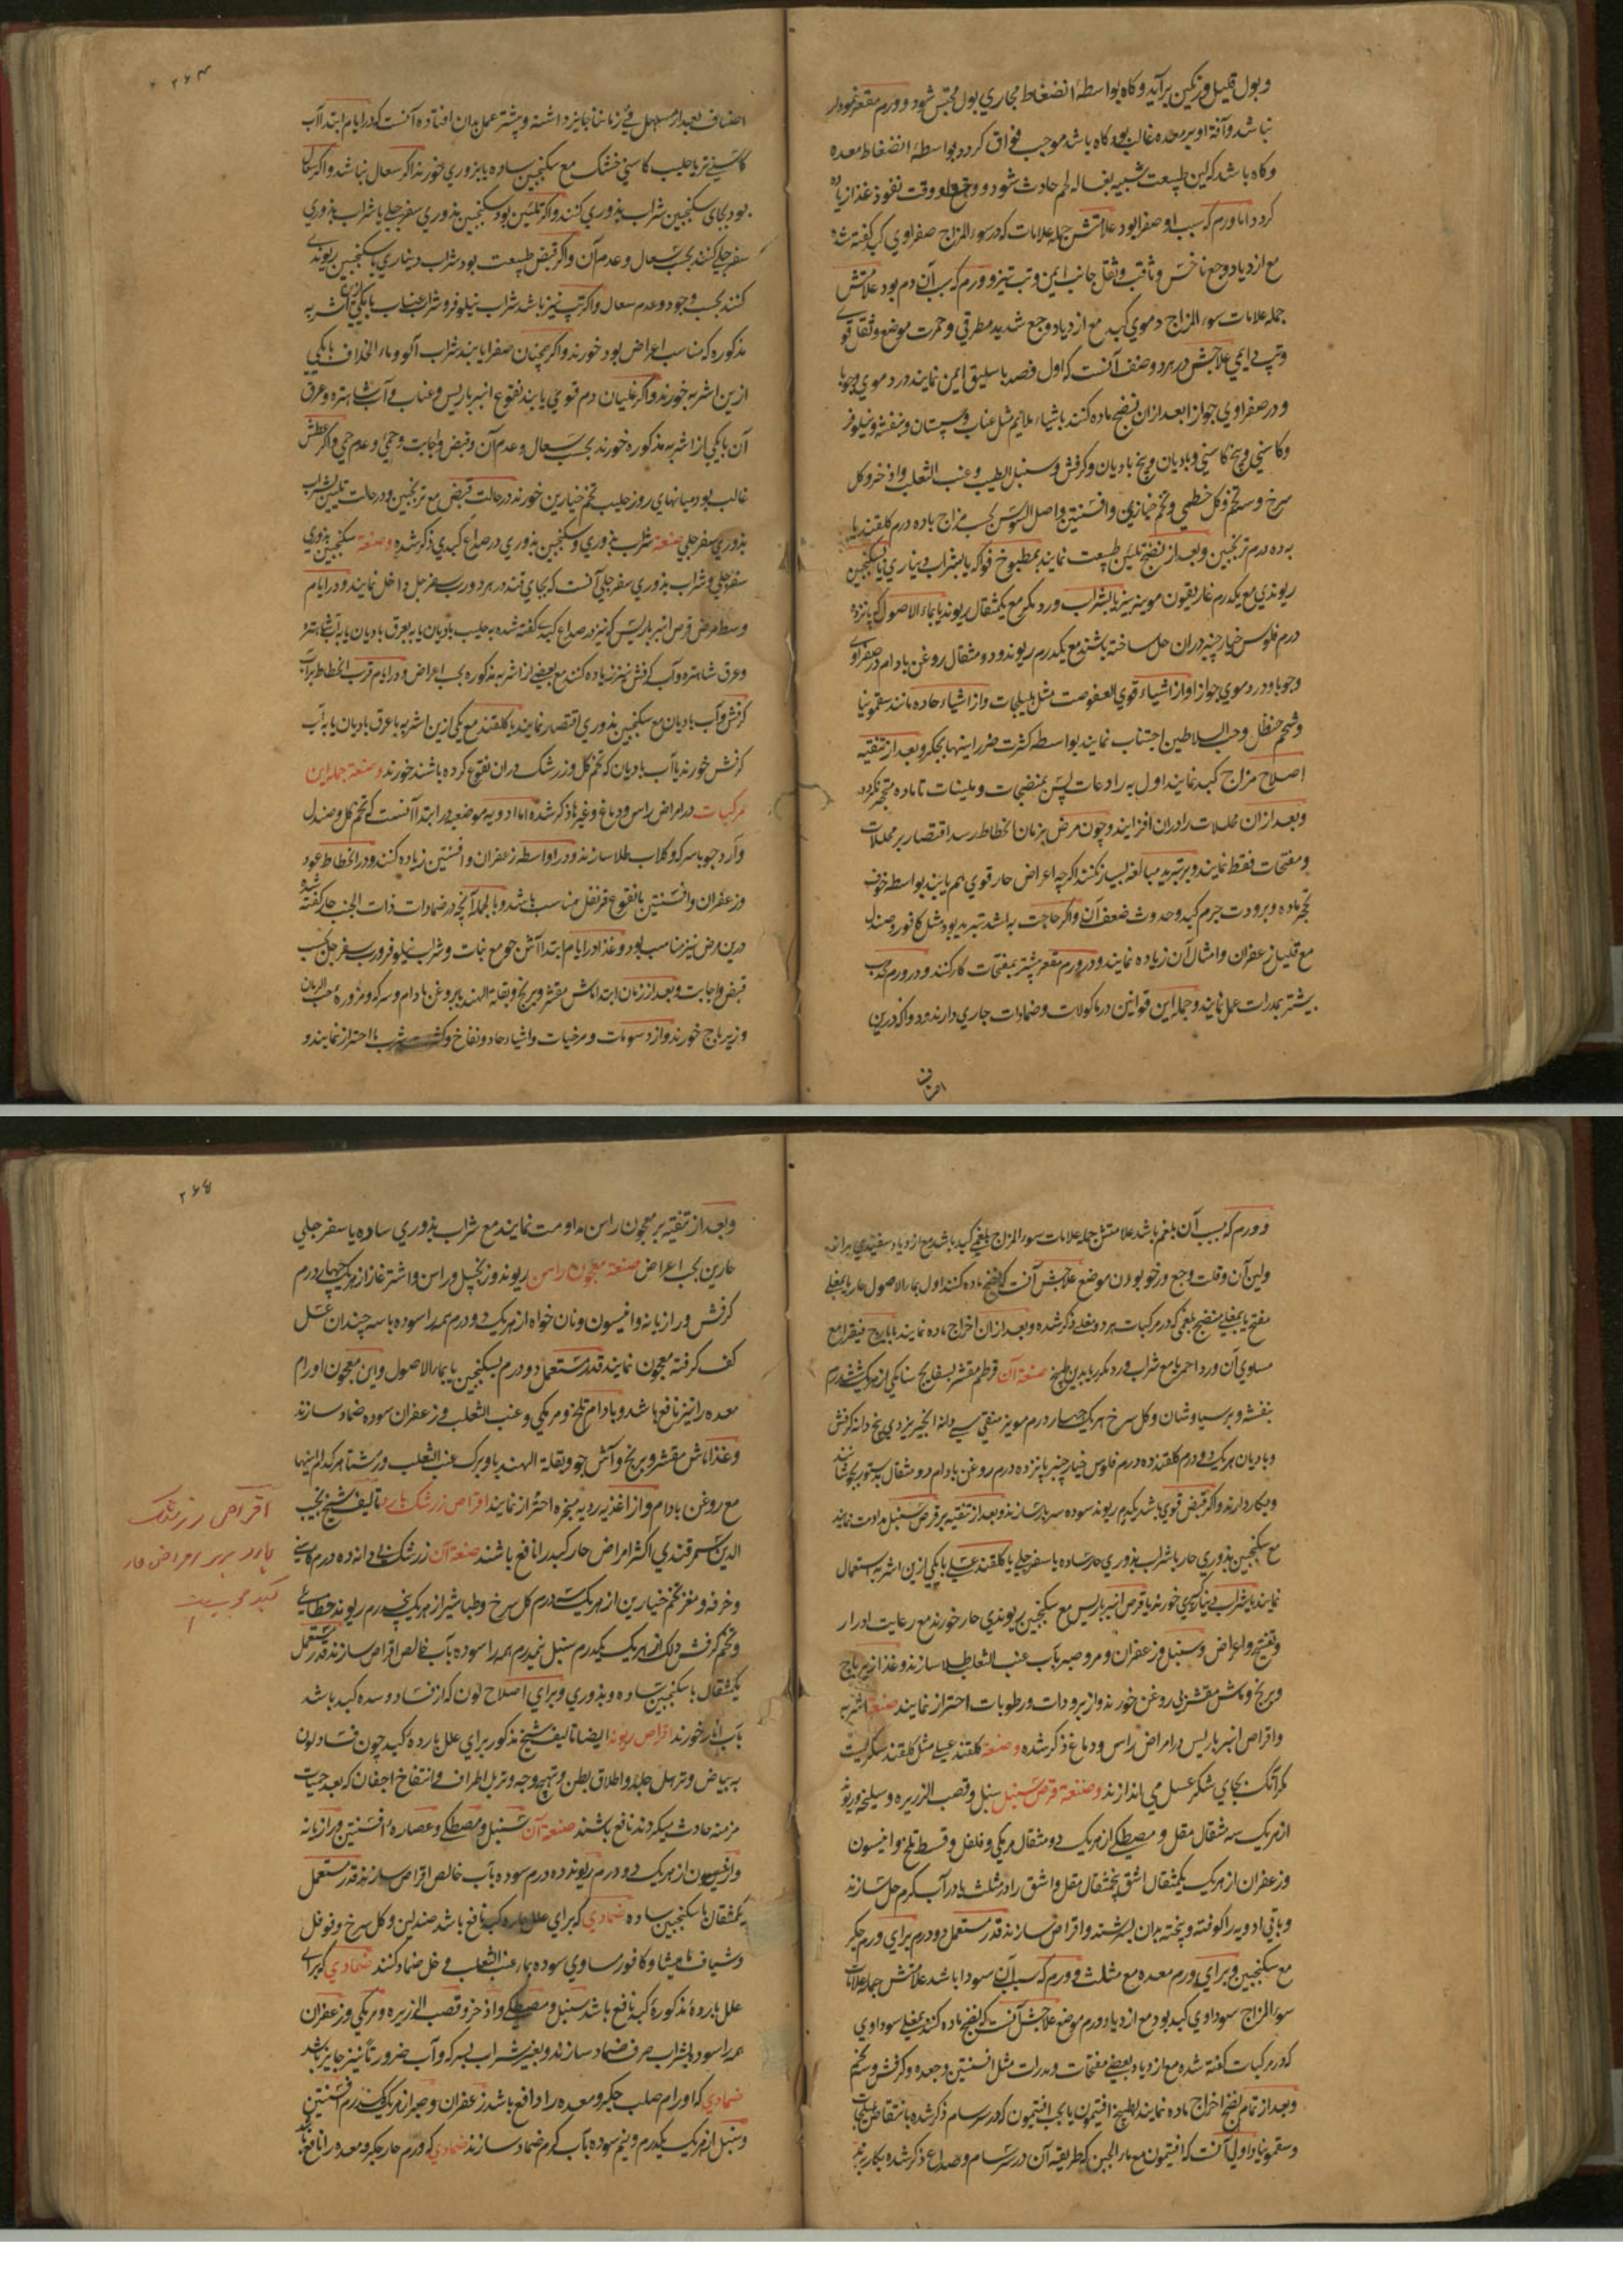 وبول قلیل ورنگین برآید وگاه بواسطهٔ انضغاط مجاری بول محتبس شود وورم مقعر نمودار
نباشد وآفة او بر معده غالب بود وگاه باشد موجب فواق گردد بواسطهٔ انضغاط معده
وگاه باشد که لین طبیعت شبیه بغساله لحم حادث شود ووجع او وقت نفوذ غذا زیاده
گردد اما ورم که سبب او صفرا بود علامتش جمله علامات که در سوء المزاج صفراوی کبد گفته شد
مع ازدیاد وجع ناخس وثاقب وثقل جانب ایمن وتب تیز وورم که سبب آن دم بود علامتش
جمله علامات سوء المزاج دموی کبد مع ازدیاد وجع شدید مطرقی وحمرت موضع وثقل قوی
وتب دایمی علاجش در هر دو صنف آنست که اول فصد باسلیق ایمن نمایند در دموی وجوبا
ودر صفراوی جوازا بعد ازان نضج ماده کنند باشیاء ملایم مثل عناب وسپستان وبنفشه ونیلوفر
وکاسنی وبیخ کاسنی وبادیان وبیخ بادیان وکرفس وسنبل الطیب وعنب الثعلب واذخر وگل
سرخ وتخم وگل خطمی وتخم خبازی وافسنتین واصل السوس بحسب مزاج باده درم گلقند یا
به ده درم ترنجبین وبعد از نضج تلئین طبیعت نمایند بمطبوخ فواکه یا بشراب دیناری یا سکنجبین
ریوندی مع یکدرم غاریقون موینیز یا بشراب ورد مکرر مع یکمثقال ریوند یا بماء الاصول که پانزده
درم فلوس خیارچنبر دران حل ساخته باشند مع یکدرم ریوند ودو مثقال روغن بادام در صفراوی
وجوبا ودر دموی جوازا واز اشیاء قوی العفوصت مثل هلیلجات واز اشیاء حاده مانند سقمونیا
وشحم حنظل وحب السلاطین اجتناب نمایند بواسطه کثرت ضرر اینها بجگر وبعد از تنقیه
اصلاح مزاج کبد نمایند اول به رادعات پس بمنضجات وملینات تا ماده متحجر نگردد
وبعد ازان محللات را دران افزایند وچون مرض بزمان انحطاط رسد اقتصار بر محللات
ومفتحات فقط نمایند وبر تبرید مبالغه بسیار نکنند اگرچه اعراض حار قوی هم یابند بواسطه خوف
تحجر ماده وبرودت جرم کبد وحدوث ضعف آن واگر حاجت به اشد تبرید بود مثل کافور وصندل
مع قلیل زعفران وامثال آن زیاده نمایند ودر ورم مقعر پیشتر بمفتحات کار کنند ودر ورم محدب
بیشتر بمدرات عمل نمایند وجمله این قوانین در ماکولات وضمادات جاری دارند ودوا که درین
اصناف
۲۶۴
اصناف بعد از مسهل فی زماننا جایز داشته وپیشتر عمل بدان افتاده آنست که در ایام ابتدا آب
کاسنی تر یا حلیب کاسنی خشک مع سکنجبین ساده یا بزوری خورند اگر سعال نباشد واگر سعال
بود بجای سکنجبین شراب بذوری کنند واگر تلئین بود سکنجبین بذوری سفرجلی یا شراب بذوری
سفرجلی کنند بحسب سعال وعدم آن واگر قبض طبیعت بود شراب دیناری یا سکنجبین ریوندی
کنند بحسب وجود وعدم سعال واگر تپ تیز باشد شراب نیلوفر وشراب عناب با یکی ازین اشربه
مذکوره که مناسب اعراض بود خورند واگر هیجان صفرا یابند شراب آلو وماء الخلاف با یکی
ازین اشربه خورند واگر غلیان دم قوی یابند نقوع انبرباریس وعناب وآب شاهتره وعرق
آن با یکی از اشربه مذکوره خورند بحسب سعال وعدم آن وقبض واجابت وحمی وعدم حمی واگر عطش
غالب بود میانهای روز حلیب تخم خیارین خورند در حالت قبض مع ترنجبین ودر حالت تلیین بشراب
بذوری سفرجلی صنعة شراب بذوری وسکنجبین بذوری در صداع کبدی ذکر شده وصنعة سکنجبین بذوری
سفرجلی وشراب بذوری سفرجلی آنست که بجای قند در هر دو رب سفرجل داخل نمایند ودر ایام
وسط مرض قرص انبرباریس که نیز در صداع کبدی گفته شده به حلیب بادیان یا به عرق بادیان یا به آب شاهتره
وعرق شاهتره وآب کرفس نیز زیاده کنند مع بعضی از اشربه مذکوره بحسب اعراض ودر ایام قرب انحطاط بر آب
کرفس وآب بادیان مع سکنجبین بذوری اقتصار نمایند یا گلقند مع یکی ازین اشربه یا عرق بادیان یا به آب
کرفس خورند یا آب بادیان که تخم گل وزرشک دران نقوع کرده باشند خورند وصنعة جمله این
مرکبات در امراض راس ودماغ وغیرها ذکر شده اما ادویه موضعیه در ابتدا آنست که تخم گل وصندل
وآرد جو با سرکه وگلاب طلا سازند ودر اواسطه زعفران وافسنتین زیاده کنند ودر انحطاط عود
وزعفران وافسنتین با نقوع قرنفل مناسب باشد وبالجمله آنچه در ضمادات ذات الجنب حار گفته شد
درین مرض نیز مناسب بود وغذا در ایام ابتدا آش جو مع نبات وشراب نیلوفر ورب سفرجل بحسب
قبض واجابت وبعد از زمان ابتدا ماش مقشر وبرنج وبقلة الهند با روغن بادام وسرکه ومزوره حب الرمان
وزیرباج خورند واز دسومات ومرخیات واشیاء حاد ونفاخ وکثرت شرب ما احتراز نمایند و
وورم که سبب آن بلغم باشد علامتش جمله علامات سوء المزاج بلغمی کبد باشد مع ازدیاد سفیدی براز
ولین آن وقلت وجع ورخو بودن موضع علاجش آنست که نضج ماده کنند اول بماء الاصول حار یا بمغلی
مفتح یا بمغلی منضج بلغمی که در مرکبات هر دو مغلی ذکر شده وبعد ازان اخراج ماده نمایند بایارج فیقرا مع
مساوی آن ورد احمر یا مع شراب ورد مکرر یا بدین طبیخ صنعة آن قرطم مقشر بسفایج سنا مکی از هر یک شش درم
بنفشه وپرسیاوشان وگل سرخ هر یک چهار درم مویز منقی سی دانه انجیر یزدی پنج دانه کرفس
وبادیان هر یک دو درم گلقند ده درم فلوس خیارچنبر پانزده درم روغن بادام دو مثقال بدستور بجوشانند
وبکار دارند واگر قبض قوی باشد یکدرم ریوند سوده سربار سازند وبعد از تنقیه بر قرص سنبل مداومت نمایند
مع سکنجبین بذوری حار یا شراب بذوری حار ساده یا سفرجلی یا گلقند عسلی یا یکی ازین اشربه استعمال
نمایند یا شراب دیناری خورند یا قرص انبرباریس مع سکنجبین ریوندی حار خورند مع رعایت ادرار
وتفتیح واعراض وسنبل وزعفران ومر وصبر به آب عنب الثعلب طلا سازند وغذا زیرباج
وبرنج وماش مقشر بی روغن خورند واز برودات ورطوبات احتراز نمایند صنعة اشربه
واقراص انبرباریس در امراض راس ودماغ ذکر شده وصنعة گلقند عسلی مثل گلقند سکریست
مگر آنک بجای شکر عسل می اندازند وصنعة قرص سنبل سنبل وقصب الزریره وسلیخه وریوند
از هر یک سه مثقال مقل ومصطکی از هر یک دو مثقال مر مکی وفلفل وقسط تلخ وانیسون
وزعفران از هر یک یکمثقال اشق پنجمثقال مقل واشق را در مثلث یا در آب گرم حل سازند
وباقی ادویه را کوفته وبیخته بدان بسرشند واقراص سازند قدر مستعمل دو درم برای ورم جگر
مع سکنجبین وبرای ورم معده مع مثلث وورم که سبب آن سودا باشد علامتش جمله علامات
سوء المزاج سوداوی کبد بود مع ازدیاد ورم موضع علاجش آنست که نضج ماده کنند بمغلی سوداوی
که در مرکبات گفته شده مع ازدیاد بعضی مفتحات ومدرات مثل افسنتین وجعده وکرفس وتخم
وبعد از تمام نضج اخراج ماده نمایند بطبیخ افتیمون یا بحب افتیمون که در سرسام ذکر شده بانتقاص هلیلجات
وسقمونیا واولی آنست که افتیمون مع ماء الجبن که طریقه آن در سرسام وصداع ذکر شده بکار برند
۲۶۵
وبعد از تنقیه بر معجون راسن مداومت نمایند مع شراب بذوری ساده یا سفرجلی
حارین بحسب اعراض صنعة معجون راسن ریوند وزنجبیل وراسن واشترغاز از هر یک چهار درم
کرفس ورازیانه وانیسون ونان خواه از هر یک دو درم همه را سوده با سه چندان عسل
کف گرفته معجون نمایند قدر مستعمل دو درم بسکنجبین یا بماء الاصول واین معجون اورام
معده را نیز نافع باشد وبادام تلخ ومر مکی وعنب الثعلب وزعفران سوده ضماد سازند
وغذا ماش مقشر وبرنج وآش جو وبقلة الهند با وبرگ عنب الثعلب ورشتا هر کدام اینها
مع روغن بادام واز اغذیه ردیه مبخره احتراز نمایند اقراص زرشک بارد تالیف شیخ نجیب
الدین سمرقندی اکثر امراض حار کبد را نافع باشند صنعة آن زرشک بی دانه ده درم کاسنی
وخرفه ومغز تخم خیارین از هر یک سه درم گل سرخ وطباشیر از هر یک پنجدرم ریوند خطایی
وتخم کرفس ولک از هر یک یکدرم سنبل نیمدرم همه را سوده با آب خالص اقراص سازند قدر مستعمل
یکمثقال با سکنجبین ساده وبذوری وبرای اصلاح لون که از فساد وسده کبد باشد
با آب انار خورند اقراص ریوند ایضا تالیف شیخ مذکور برای علل بارده کبد چون فساد لون
به بیاض وترهل جلد واطلاق بطن وتهیج وجه وتربل اطراف وانتفاخ اجفان که بعد حمیات
مزمنه حادث میگردند نافع باشند صنعة آن سنبل ومصطکی وعصاره افسنتین ورازیانه
وانیسون از هر یک دو درم ریوند ده درم سوده با آب خالص اقراص سازند قدر مستعمل
یکمثقال با سکنجبین ساده ضمادی که برای علل حاره کبد نافع باشد صندلین وگل سرخ وفوفل
وشیاف مامیثا وکافور مساوی سوده بماء عنب الثعلب وخل ضماد کنند ضمادی که برای
علل بارده مذکوره کبد نافع باشد سنبل ومصطکی واذخر وقصب الزریره ومر مکی وزعفران
همه را سوده بشراب صرف ضماد سازند وبغیر شراب بسرکه وآب ضرورتا نیز جایز باشد
ضمادی که اورام صلب جگر ومعده را دافع باشد زعفران وصبر از هر یک یکدرم افسنتین
وسنبل از هر یک یکدرم ونیم سوده با آب گرم ضماد سازند ضمادی که ورم حار جگر ومعده را نافع باشد
اقراص زرشک
بارد برای امراض حار
کبد مجربست